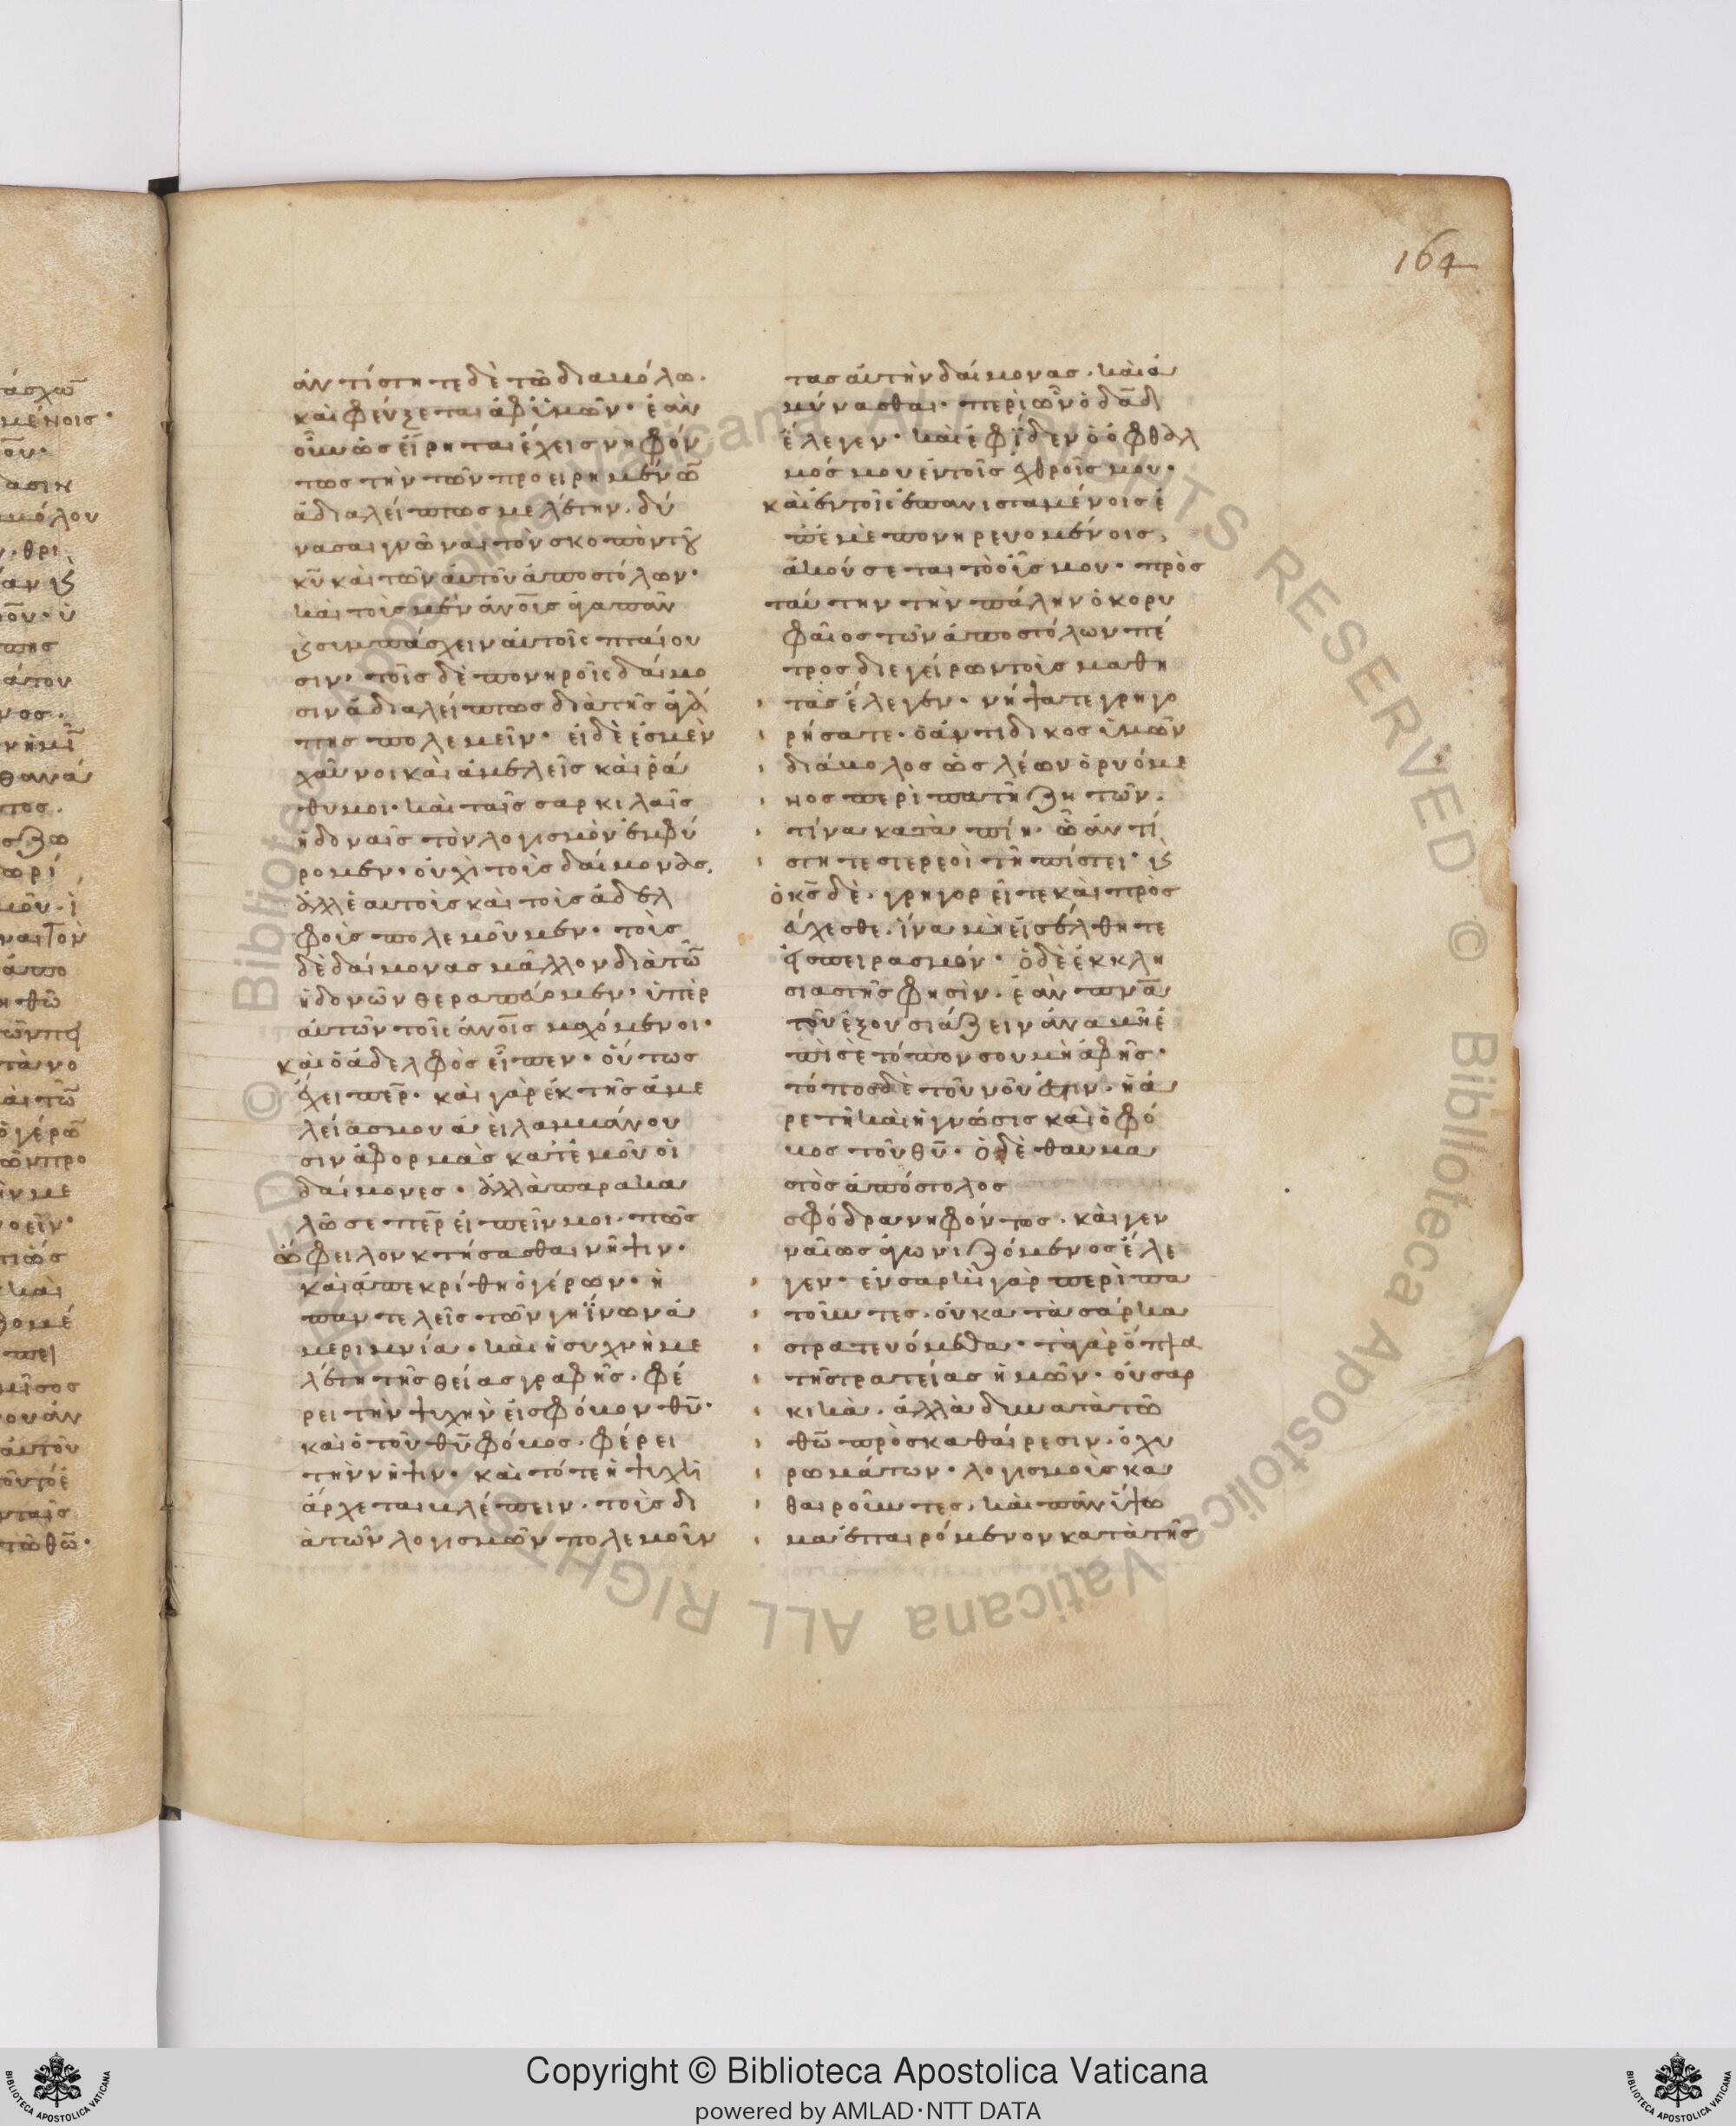 164
ἀντίστητε δὲ τῶ διαβόλω·
καὶ φεύξεται ἀφ' ὑμῶν· ἐὰν
οὖν ὡς εἴρηται ἔχεις νηφόν
τως τὴν τῶν προειρημένω̅
ἀδιαλείπτως μελέτην· δύ
νασαι γνῶναι τὸν σκοπὸν τοῦ
κ̅υ̅ καὶ τῶν αὐτοῦ ἀποστόλων·
καὶ τοὺς μὲν ἀν̅ο̅υ̅ς ἀγαπᾶν
κ̀ συμπάσχειν αὐτοῖς πταίου
σιν· τοῖς δὲ πονηροῖς δαίμο
σιν ἀδιαλείπτως διὰ τῆς ἀγά
πης πολεμεῖν· εἰ δὲ ἐσμὲν
χαῦνοι καὶ ἀμβλεῖς καὶ ῥά
θυμοι· καὶ ταῖς σαρκικαῖς
ἡδοναῖς τὸν λογισμὸν ἐμφύ
ρομεν· οὐχὶ τοὺς δαίμονας,
ἀλλ' ἑαυτοὺς καὶ τοὺς ἀδελ
φοὺς πολεμοῦμεν· τοὺς
δὲ δαίμονας μᾶλλον διὰ τῶ̅
ἡδονῶν θεραπεύομεν· ὑπὲρ
αὐτῶν τοῖς ἀν̅ο̅ι̅ς μαχόμενοι·
καὶ ὁ ἀδελφὸς εἶπεν· οὕτως
ἔχει π̅ε̅ρ· καὶ γὰρ ἐκ τῆς ἀμε
λείας μου ἀεὶ λαμβάνου
σιν ἀφορμὰς κατ' ἐμοῦ οἱ
δαίμονες· ἀλλὰ παρακα
λῶ σε π̅ε̅ρ εἰπεῖν μοι· πῶς
ὤφειλον κτήσασθαι νῆψιν·
καὶ ἀπεκρίθη ὁ γέρων· ἡ
παντελεῖς τῶν γηΐνων ἀ
μεριμνία· καὶ ἡ συχνὴ με
λέτη τῆς θείας γραφῆς· φέ
ρει τὴν ψυχὴν εἰς φόβον θ̅υ̅·
καὶ ὁ τοῦ θ̅υ̅ φόβος· φέρει
τὴν νῆψιν· καὶ τότε ἡ ψυχὴ
ἄρχεται βλέπειν· τοὺς δι
ὰ τῶν λογισμῶν πολεμοῦν
τας αὐτὴν δαίμονας· καὶ ἀ
μύνασθαι· περὶ ὧν ὁ δ̅α̅δ̅
ἔλεγεν· καὶ ἐφῖδεν ὁ ὀφθαλ
μός μου ἐν τοῖς ἐχθροῖς μου·
καὶ ἐν τοῖς ἐπανισταμένοις ἐ
π' ἐμὲ πονηρευομένοις,
ἀκούσεται τὸ οὖς μου· πρὸς
ταύτην τὴν πάλην ὁ κορυ
φαῖος τῶν ἀποστόλων πέ
τρος διεγείρων τοὺς μαθη
τὰς ἔλεγεν· νήψατε γρηγο
ρήσατε· ὁ ἀντίδικος ὑμῶν
διάβολος ὡς λέων ὀρυόμε
νος περὶ πατῆ ζητῶν·
τίνα καταπίη· ὧ ἀντί
στητε στερεοὶ τῆ πίστει· κ̀
ὁ κ̅ς̅ δὲ· γρηγορεῖτε καὶ προσ
εύχεσθε· ἵνα μὴ εἰσέλθητε
εἰς πειρασμόν· ὁ δὲ ἐκκλη
σιαστῆς φησὶν· ἐὰν π̅ν̅α̅
τοῦ ἐξουσιάζειν ἀναβῆ ἐ
πὶ σὲ τόπον σου μὴ ἀφῆς·
τόπος δὲ τοῦ νοῦ ἐστιν· ἡ ἀ
ρετὴ καὶ ἡ γνῶσις καὶ ὁ φό
βος τοῦ θ̅υ̅· ὁ δὲ θαυμα
στὸς ἀπόστολος
σφόδρα νηφόντως· καὶ γεν
ναίως ἀγωνιζόμενος ἔλε
γεν· ἐν σαρκὶ γὰρ περιπα
τοῦντες· οὐ κατὰ σάρκα
στρατευόμεθα· τὰ γὰρ ὅπλα
τῆς στρατείας ἡμῶν· οὐ σαρ
κικὰ· ἀλλὰ δυνατὰ τῶ
θ̅ω̅ πρὸς καθαίρεσιν· ὀχυ
ρωμάτων· λογισμοὺς κα
θαιροῦντες· καὶ πᾶν ὕψω
μα ἐπαιρόμενον κατὰ τῆς
Copyright © Biblioteca Apostolica Vaticana
powered by AMLAD·NTT DATA